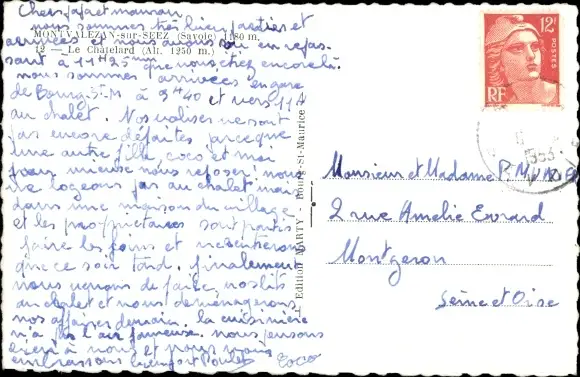 Chers papa et maman
nous sommes très bien parties et
MONTVALEZAN-sur-SEEZ (Savoie) 1180 m.
arrivées et nous avons su en repas-
12 — Le Châtelard (Alt. 1250 m.)
sant à 11H35mn que vous étiez encore là.
nous sommes arrivées en gare
de Bourg St M à 9H40 et vers 11H
au chalet. Nos valises ne sont
pas encore défaites parceque
une autre fille, coco et moi
pour mieux nous reposer, nous
ne logeons pas au chalet mais
dans une maison du village
et les propriétaires sont partis
faire les foins et ne rentreront
que ce soir tard. finalement
nous venons de faire nos lits
au chalet et nous déménagerons
nos affaires demain. la cuisinière
n'a pas l'air fameuse. nous pensons
à vous et nous vous
embrassons bien fort Poulet
Coco
Edition MARTY - Bourg-St-Maurice
12F
POSTES
RF
1953
Monsieur et Madame P.
2 rue Amélie Evrard
Montgeron
Seine et Oise